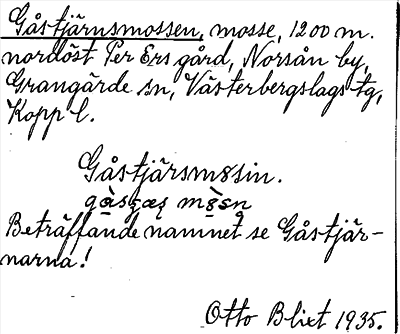 Gåstjärnsmossen, mosse, 1200 m.
nordöst Per Ers gård, Norsån by,
Grangärde sn, Västerbergslags tg,
Kopp. l.
Gåstjärsmosin.
Beträffande namnet se Gåstjär-
narna!
Otto Blixt 1935.